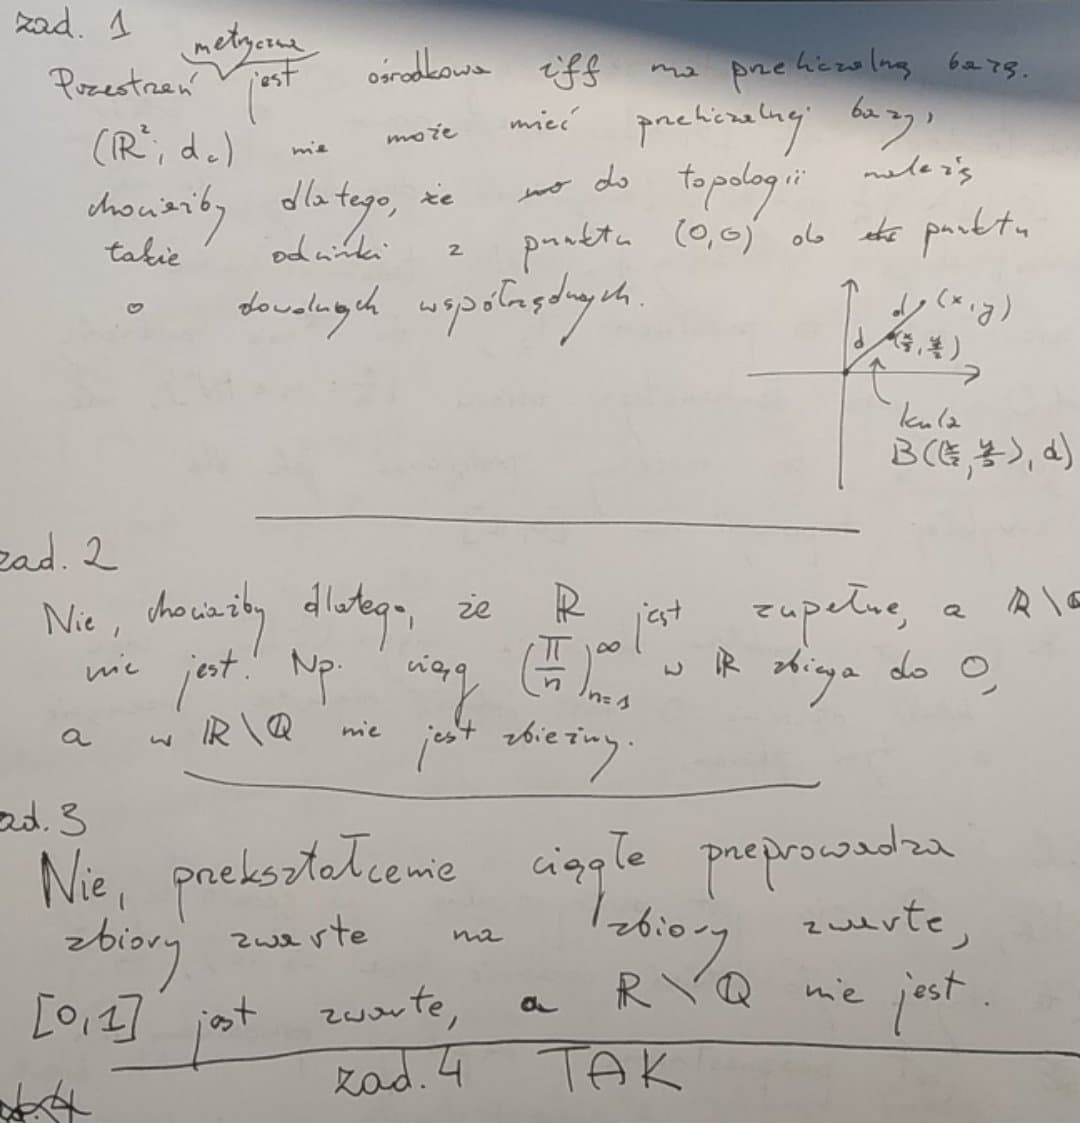 zad. 1
metryczna
Przestrzeń jest ośrodkowa iff ma przeliczalną bazę.
(ℝ², d_c) nie może mieć przeliczalnej bazy,
chociażby dlatego, że do topologii należą
takie odcinki z punktu (0,0) do punktu
o dowolnych współrzędnych.
d (x,y)
d (x/2, y/2)
kula
B((x/2, y/2), d)
zad. 2
Nie, chociażby dlatego, że ℝ jest zupełne, a ℝ\ℚ
nie jest. Np. ciąg (π/n)_{n=1}^∞ w ℝ zbiega do 0,
a w ℝ\ℚ nie jest zbieżny.
zad. 3
Nie, przekształcenie ciągłe przeprowadza
zbiory zwarte na zbiory zwarte,
[0,1] jest zwarte, a ℝ\ℚ nie jest.
zad. 4 TAK